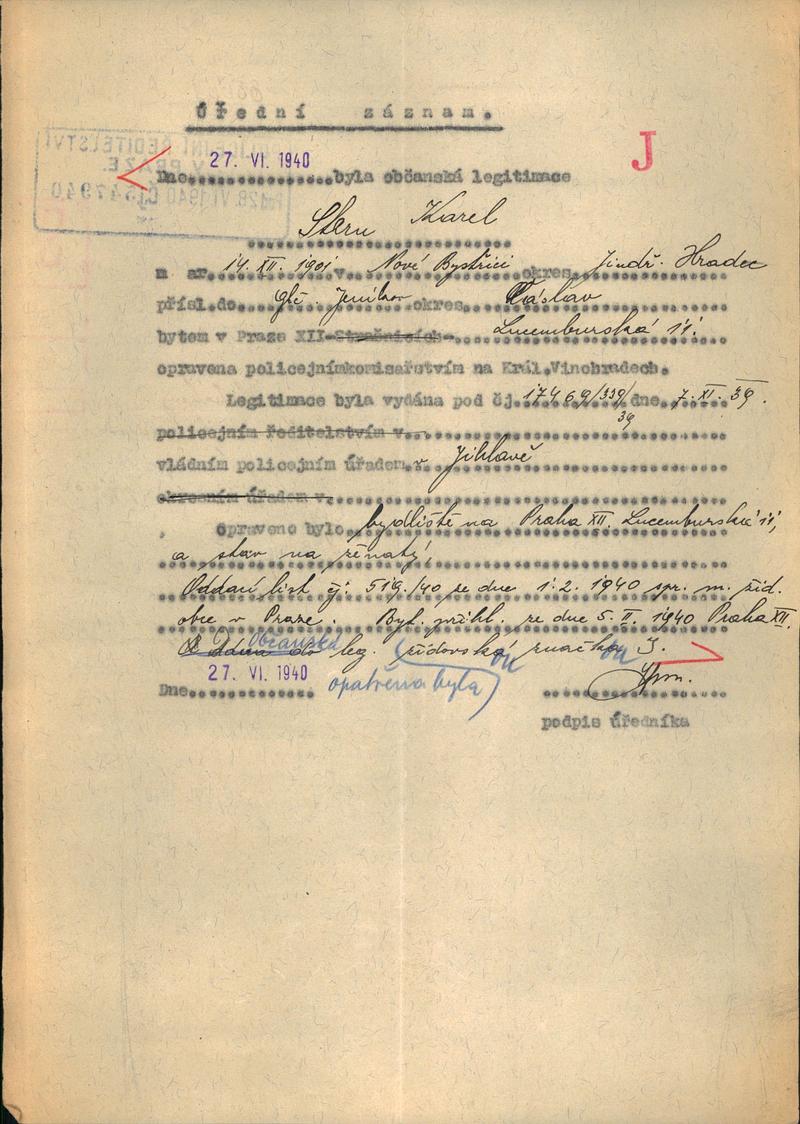 Úřední záznam.
J
Dne 27. VI. 1940 byla občanská legitimace
Stern Karel
nar. 14. XII. 1901 v Nové Bystřici okres Jindř. Hradec
přísl.do Glč. Jeníkov okres Čáslav
bytem v Praze XII-Strašnicích-, Lucemburská 11.
opravena policejnímkomisařstvím na Král.Vinohradech.
Legitimace byla vydána pod čj. 17469/339/39 dne 7. XI. 39.
policejním ředitelstvím v
vládním policejním úřadem v Jihlavě
okresním úřadem v
Opraveno bylo bydliště na Praha XII. Lucemburská 11,
a stav na ženatý,
Oddací list čj: 519./40 ze dne 1. 2. 1940 spr. m. žid.
obce v Praze. Byt. přihl. ze dne 5. II. 1940 Praha XII.
Občanská
leg. židovská značkou J.
Dne 27. VI. 1940 opatřena byla
podpis úředníka